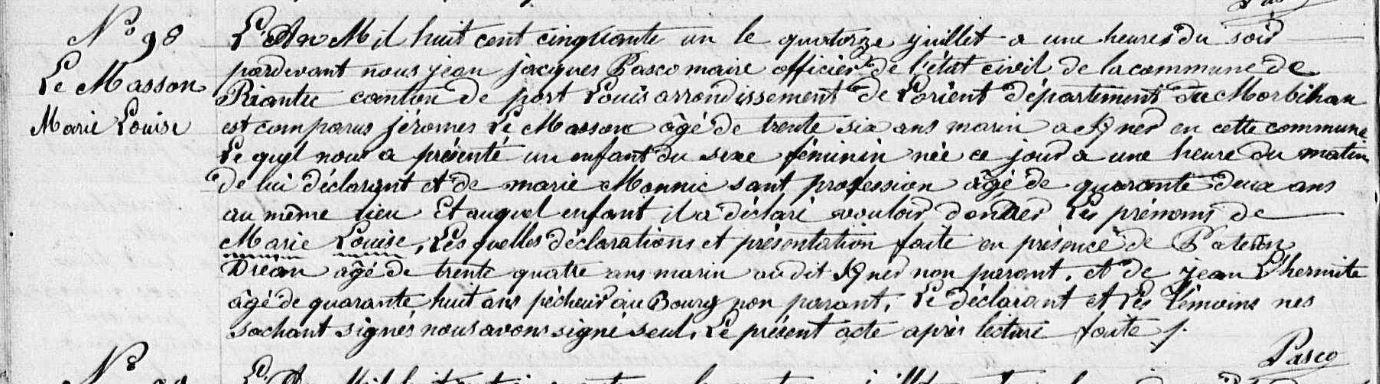 N° 98
Le Masson
Marie Louise
L'An Mil huit cent cinquante un le quatorze juillet a une heures du soir
pardevant nous jean jacques Pasco maire officier de l'état civil de la commune de
Riantec canton de port Louis arrondissement de Lorient département du Morbihan
est comparus jéromes Le Masson âgé de trente six ans marin a en cette commune
Le quel nous a présenté un enfant du sexe féminin née ce jour a une heure du matin
de lui déclarant et de marie Monnic sant profession âgé de quarante deux ans
au même lieu Et auquel enfant il a déclaré vouloir donner Les prénoms de
Marie Louise, Les quelles déclarations et présentation faite en présence de
Dréan âgé de trente quatre ans marin au dit non parant, et de jean L'hermite
âgé de quarante huit ans pécheur au Bourg non parant, Le déclarant et Les témoins nes
sachant signés nous avons signé seul, Le présent acte après lecture faite /.
Pasco